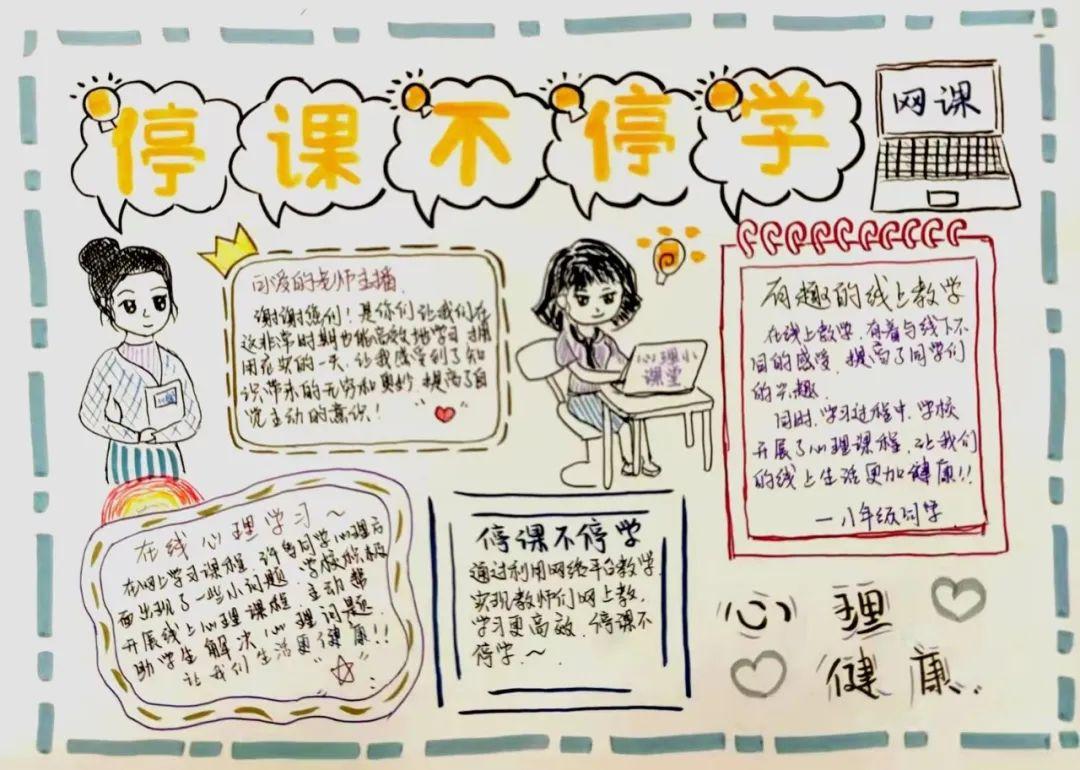 停课不停学
网课
可爱的老师主播
谢谢您们！是你们让我们在
这非常时期也能高效地学习，拥
用充实的一天，让我感受到了知
识带来的无穷和奥妙，提高了自
觉主动的意识！
心理小
课堂
有趣的线上教学
在线上教学，有着与线下不
同的感受，提高了同学们
的兴趣.
同时，学习过程中，学校
开展了心理课程，让我们
的线上生活更加健康！！
—八年级同学
在线心理学习～
在网上学习课程，许多同学心理方
面出现了一些小问题，学校积极
开展线上心理课程，主动帮
助学生解决心理问题，
让我们生活更健康！！
停课不停学
通过利用网络平台教学，
实现教师们网上教，
学习更高效，停课不
停学.～
心理
健康...